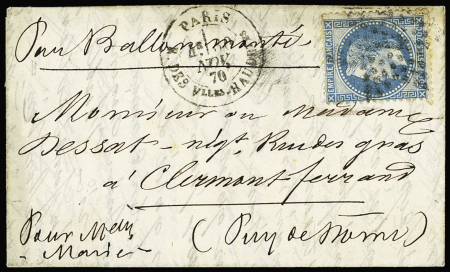 Par Ballon monté
PARIS
70
DES Vlles-HAUDtes
EMPIRE FRANÇAIS
Monsieur ou Madame
Dessat - négt, Rue des gras
à Clermont ferrand
(Puy de Dôme)
Pour Melle
Marie